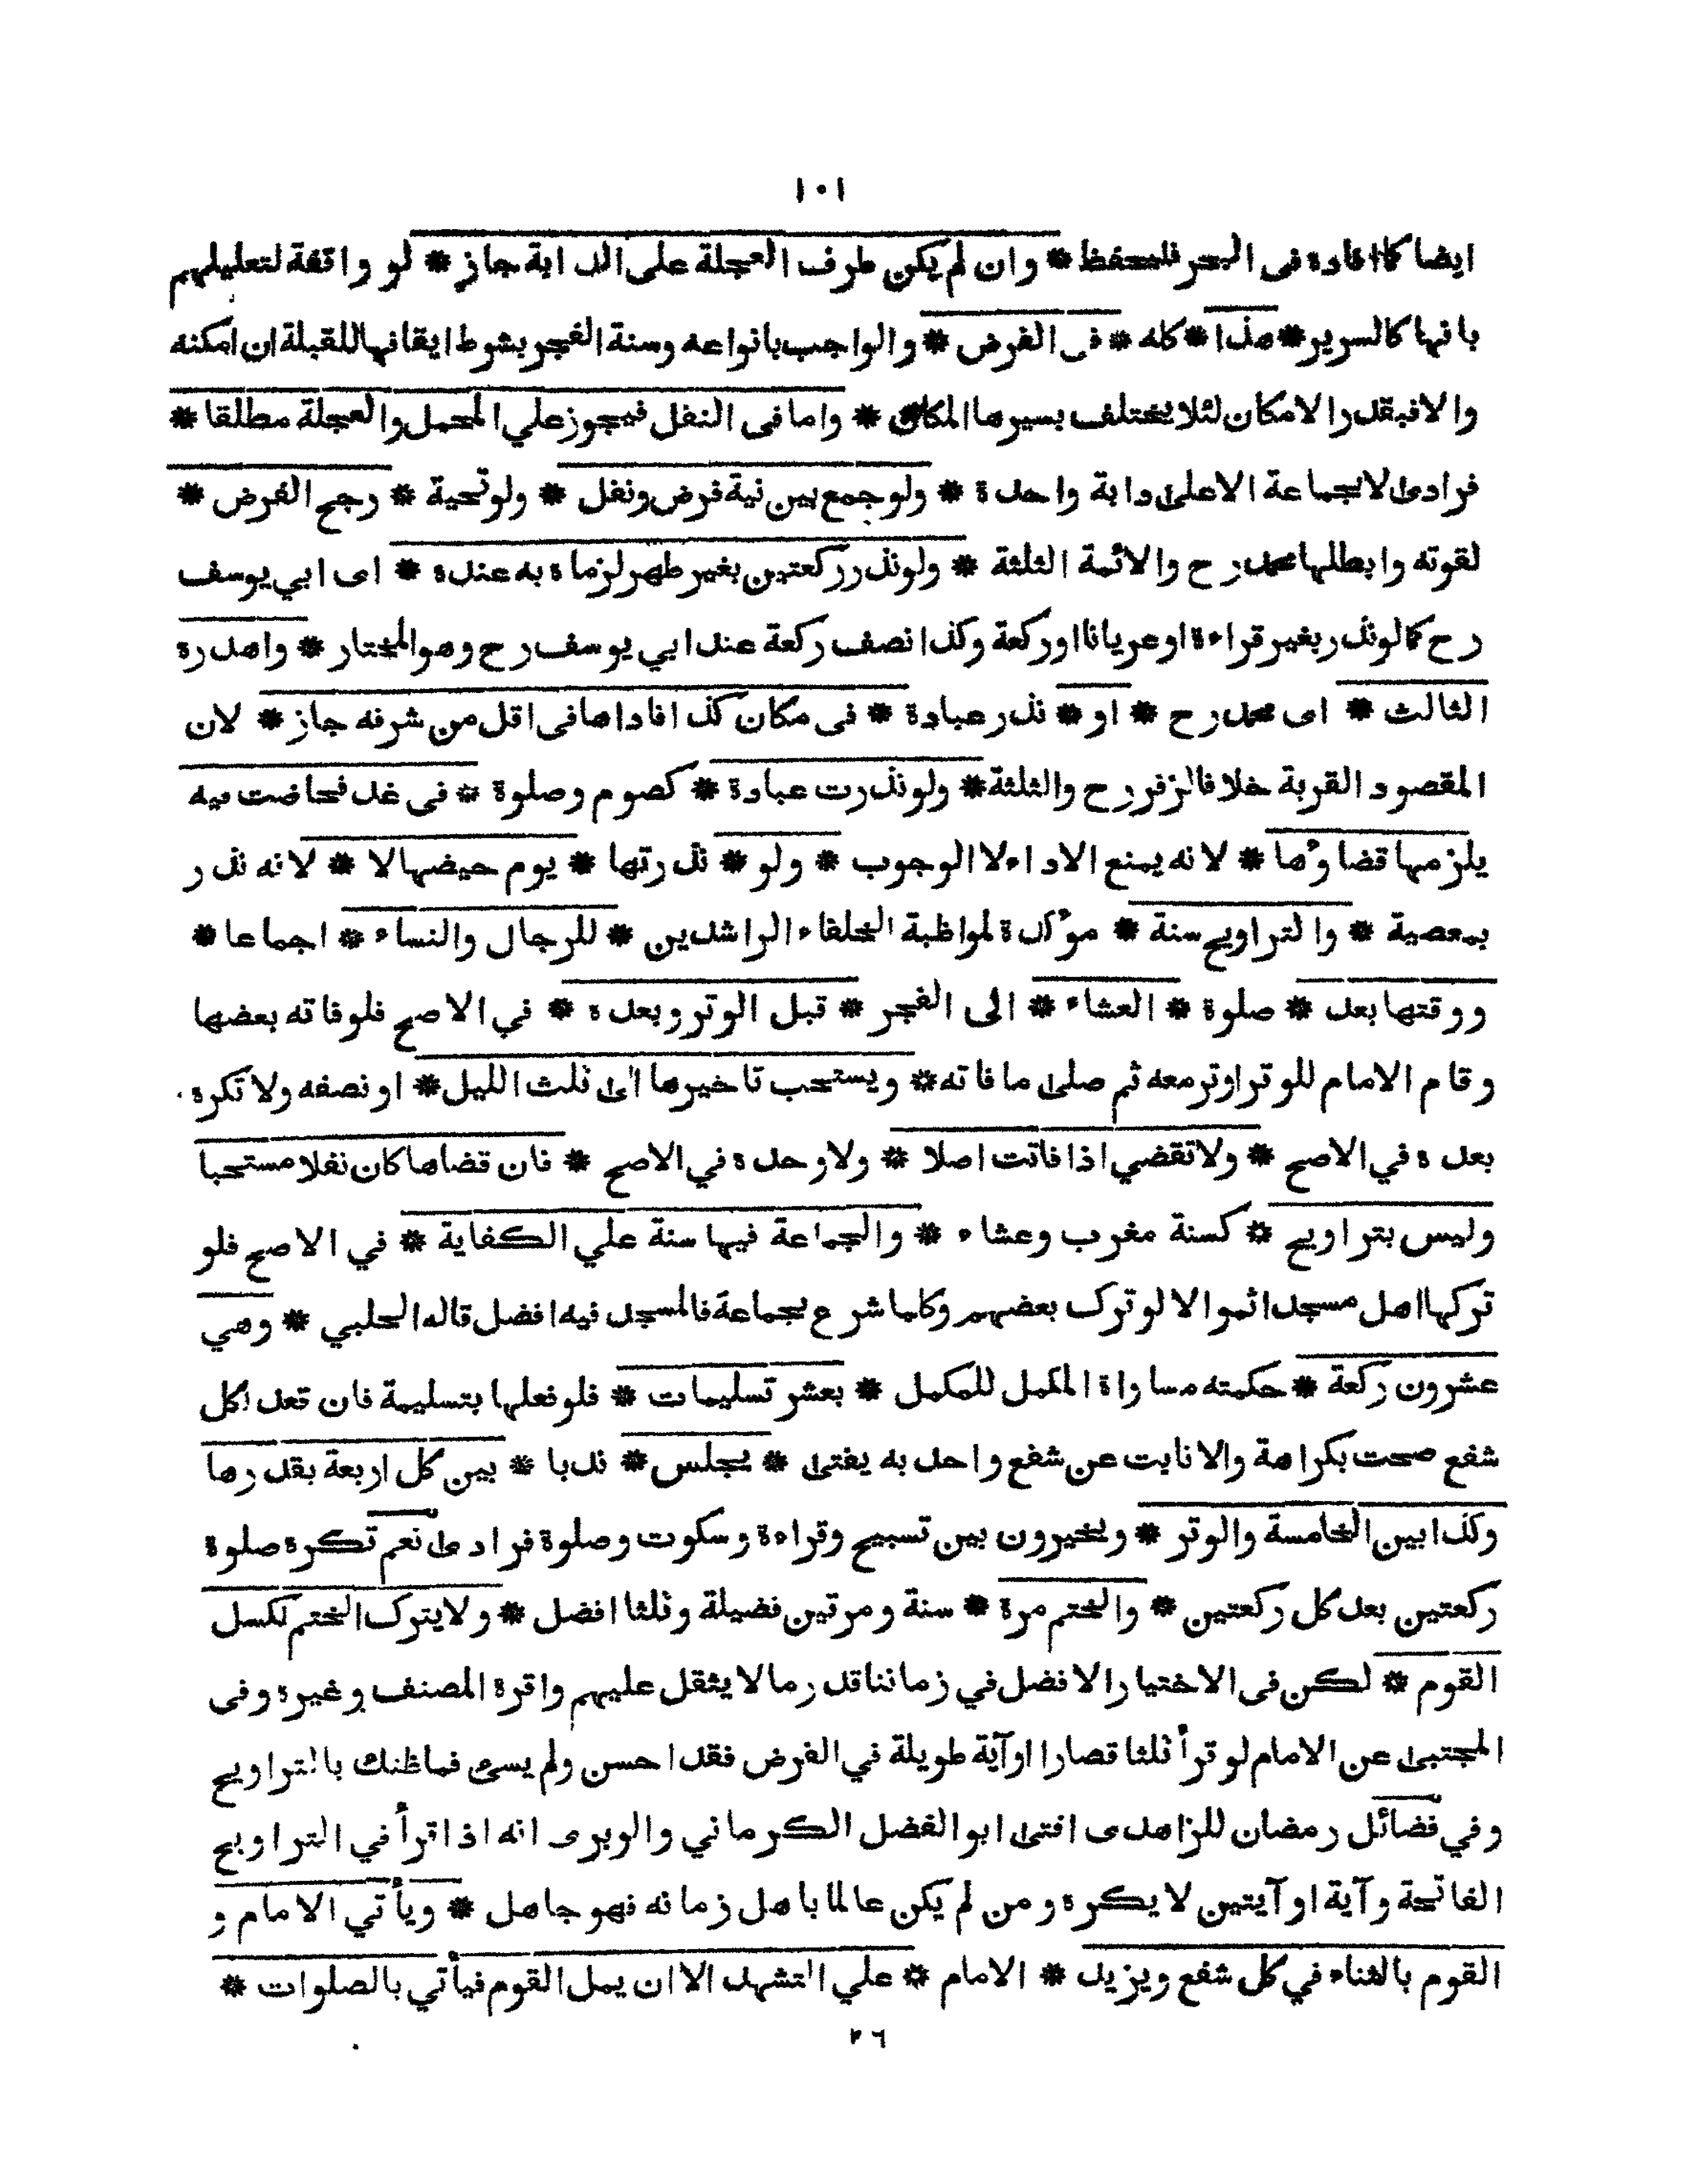 ١٠١
ايضا كما افاده فى البحر فليحفظ * وان لم يكن طرف العجلة على الدابة جاز * لو واقفة لتعليلهم
بانها كالسرير * هذا * كله * فى الفرض * والواجب بانواعه وسنة الفجر بشرط ايقافها للقبلة ان امكنه
والا فبقدر الامكان لئلا يختلف بسيرها المكان * واما فى النفل فيجوز علي المحمل والعجلة مطلقا *
فرادى لا بجماعة الا على دابة واحدة * ولو جمع بين نية فرض ونفل * ولو تحية * رجح الفرض *
لقوته وابطلها محمد رح والائمة الثلثة * ولو نذر ركعتين بغير طهر لزماه به عنده * اى ابي يوسف
رح كما لو نذر بغير قراءة او عريانا او ركعة وكذا نصف ركعة عند ابي يوسف رح وهو المختار * واهدره
الثالث * اى محمد رح * او * نذر عبادة * فى مكان كذا فاداها فى اقل من شرفه جاز * لان
المقصود القربة خلافا لزفر رح والثلثة * ولو نذرت عبادة * كصوم وصلوة * فى غد فحاضت فيه
يلزمها قضاؤها * لانه يمنع الاداء لا الوجوب * ولو * نذرتها * يوم حيضها لا * لانه نذر
بمعصية * والتراويح سنة * مؤكدة لمواظبة الخلفاء الراشدين * للرجال والنساء * اجماعا *
ووقتها بعد * صلوة * العشاء * الى الفجر * قبل الوتر وبعده * في الاصح فلو فاته بعضها
وقام الامام للوتر اوتر معه ثم صلى ما فاته * ويستحب تاخيرها الى ثلث الليل * او نصفه ولا تكره
بعده في الاصح * ولا تقضي اذا فاتت اصلا * ولا وحده في الاصح * فان قضاها كان نفلا مستحبا
وليس بتراويح * كسنة مغرب وعشاء * والجماعة فيها سنة علي الكفاية * في الاصح فلو
تركها اهل مسجد اثموا الا لو ترك بعضهم وكلما شرع بجماعة فالمسجد فيه افضل قاله الحلبي * وهي
عشرون ركعة * حكمته مساواة المكمل للمكمل * بعشر تسليمات * فلو فعلها بتسليمة فان قعد لكل
شفع صحت بكراهة والا نابت عن شفع واحد به يفتى * يجلس * ندبا * بين كل اربعة بقدرها
وكذا بين الخامسة والوتر * ويخيرون بين تسبيح وقراءة وسكوت وصلوة فرادى نعم تكره صلوة
ركعتين بعد كل ركعتين * والختم مرة * سنة ومرتين فضيلة وثلثا افضل * ولا يترك الختم لكسل
القوم * لكن فى الاختيار الافضل في زماننا قدر ما لا يثقل عليهم واقره المصنف وغيره وفى
المجتبى عن الامام لو قرأ ثلثا قصارا او آية طويلة في الفرض فقد احسن ولم يسئ فما ظنك بالتراويح
وفي فضائل رمضان للزاهدى افتى ابو الفضل الكرماني والوبرى انه اذا قرأ في التراويح
الفاتحة وآية او آيتين لا يكره ومن لم يكن عالما باهل زمانه فهو جاهل * ويأتي الامام و
القوم بالثناء في كل شفع ويزيد * الامام * علي التشهد الا ان يمل القوم فيأتي بالصلوات *
٢٦